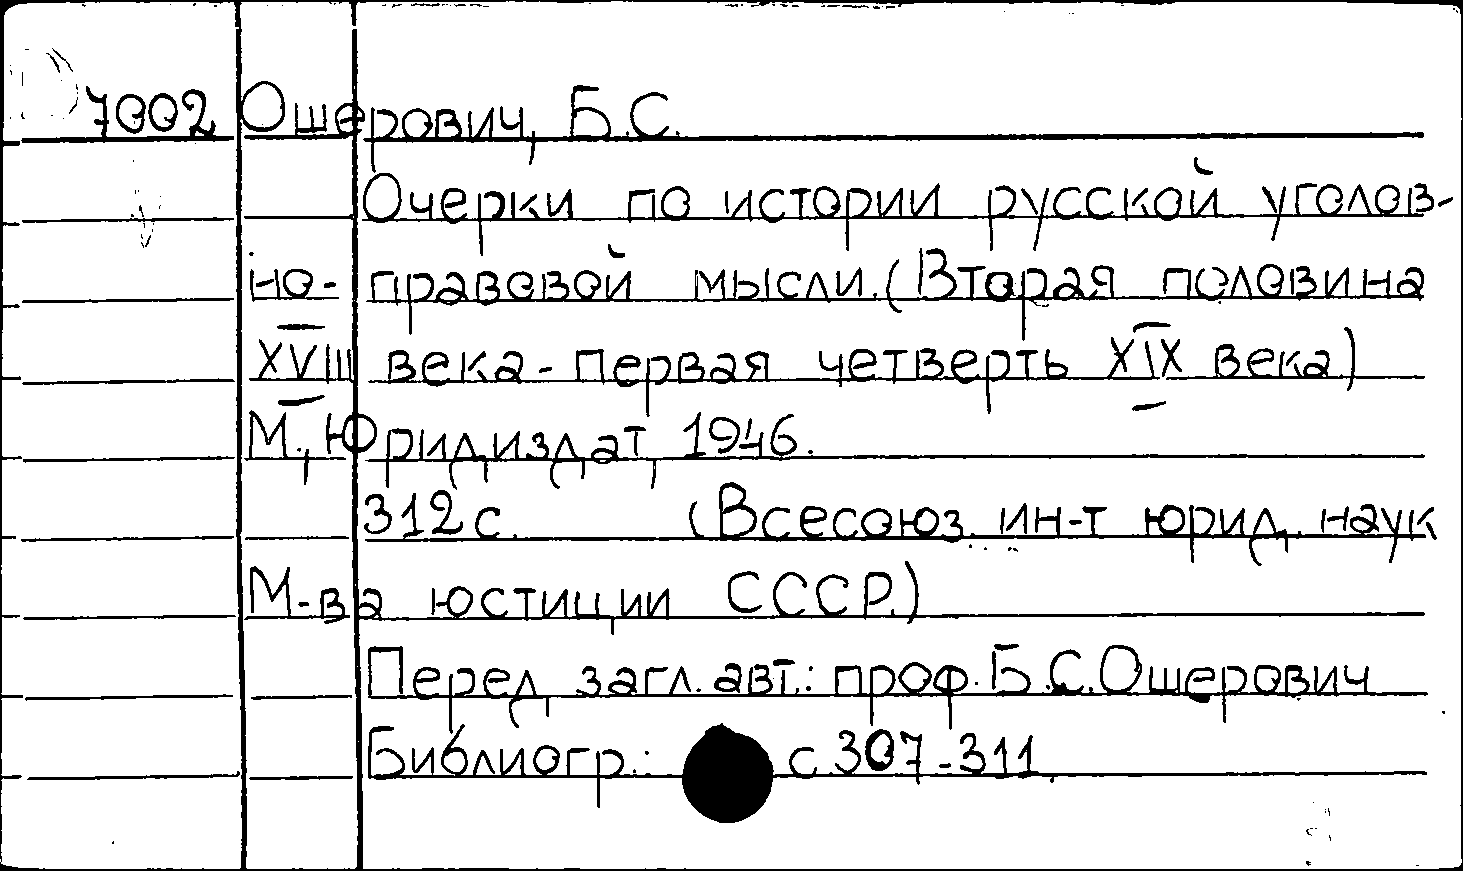 7002 Ошерович, Б.С.
Очерки по истории русской уголов-
но-правовой мысли.(Вторая половина
XVIII века-первая четверть XIX века)
М., Юридиздат, 1946.
312с. (Всесоюз. ин-т юрид. наук
М-ва юстиции СССР.)
Перед загл. авт.: проф. Б.С.Ошерович
Библиогр.: с.307-311.